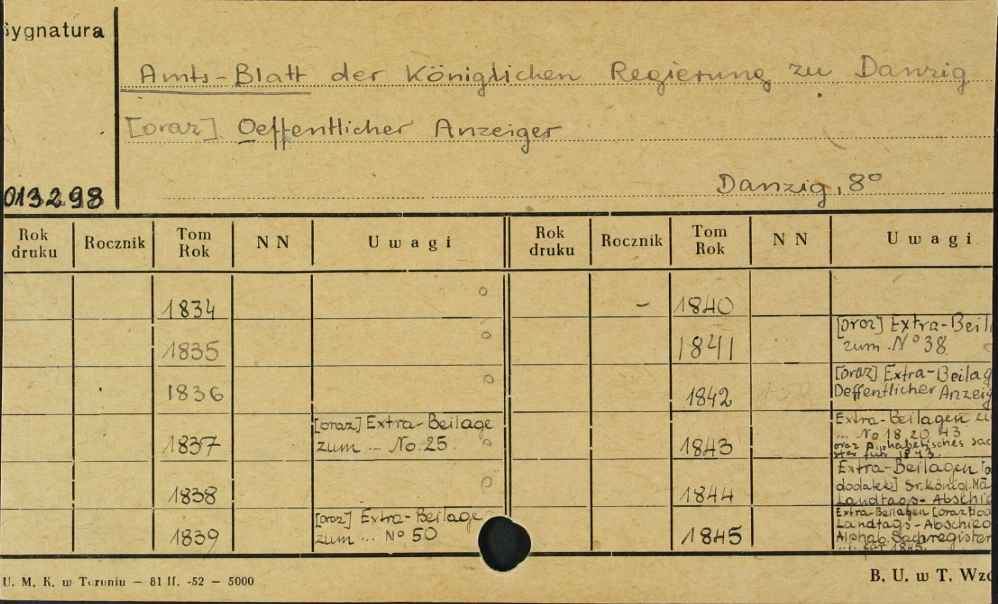 Sygnatura
Amts-Blatt der Königlichen Regierung zu Danzig
[oraz] Oeffentlicher Anzeiger
Danzig, 8°
013298
Rok druku Rocznik Tom Rok NN Uwagi Rok druku Rocznik Tom Rok NN Uwagi
1834 - 1840
1835 1841 [oraz] Extra-Beil
zum N° 38
1836 1842 [oraz] Extra-Beilag
Oeffentlicher Anzeig
1837 [oraz] Extra-Beilage
zum ... No 25
1843 Extra-Beilagen zu
... No 18, 20, 43
oraz Alphabetisches Sac
für 1843.
1838 1844 Extra-Beilagen [o
dodatek] Sr. König. Ma
Landtags-Abschie
1839 [oraz] Extra-Beilage
zum ... N° 50
1845 Extra-Beilagen [oraz dod
Landtags-Abschied
Alphab. Sachregister
für 1845.
U. M. K. w Toruniu — 81 II. -52 — 5000
B. U. w T. Wzó